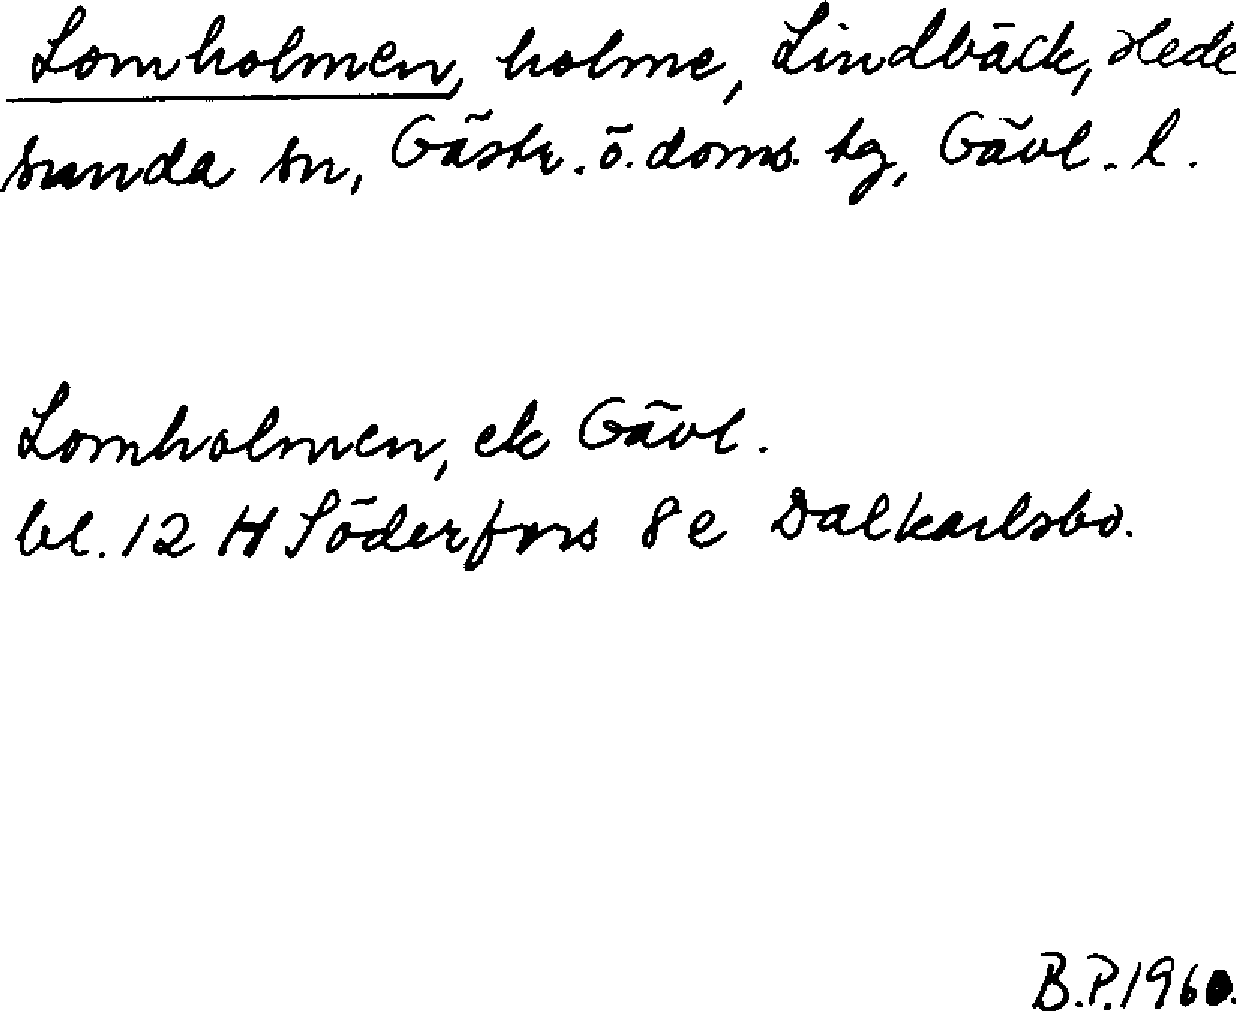 Lomholmen, holme, Lindbäck, Hede
sunda sn, Gästr. ö. doms. tg, Gävl. l.
Lomholmen, ek Gävl.
bl. 12 H Söderfors 8 e Dalkarlsbo.
B.P. 1960.